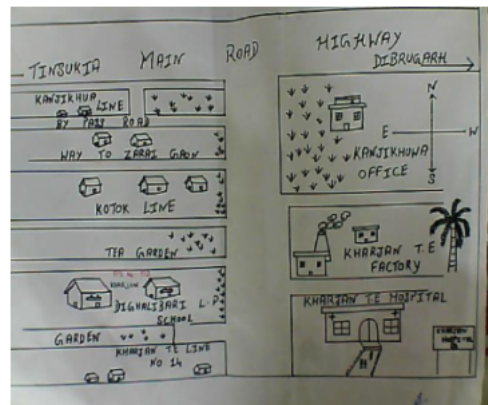 TINSUKIA MAIN ROAD HIGHWAY
DIBRUGARH
KANJIKHUA
LINE
BY PASS ROAD
WAY TO ZARAI GAON
KOTOK LINE
TEA GARDEN
KHARJAN
DIGHALIBARI L.P
SCHOOL
GARDEN
KHARJAN T.E LINE
NO 14
N
E W
S
KANJIKHUWA
OFFICE
KHARJAN T.E
FACTORY
KHARJAN T.E HOSPITAL
KHARJAN
HOSPITAL